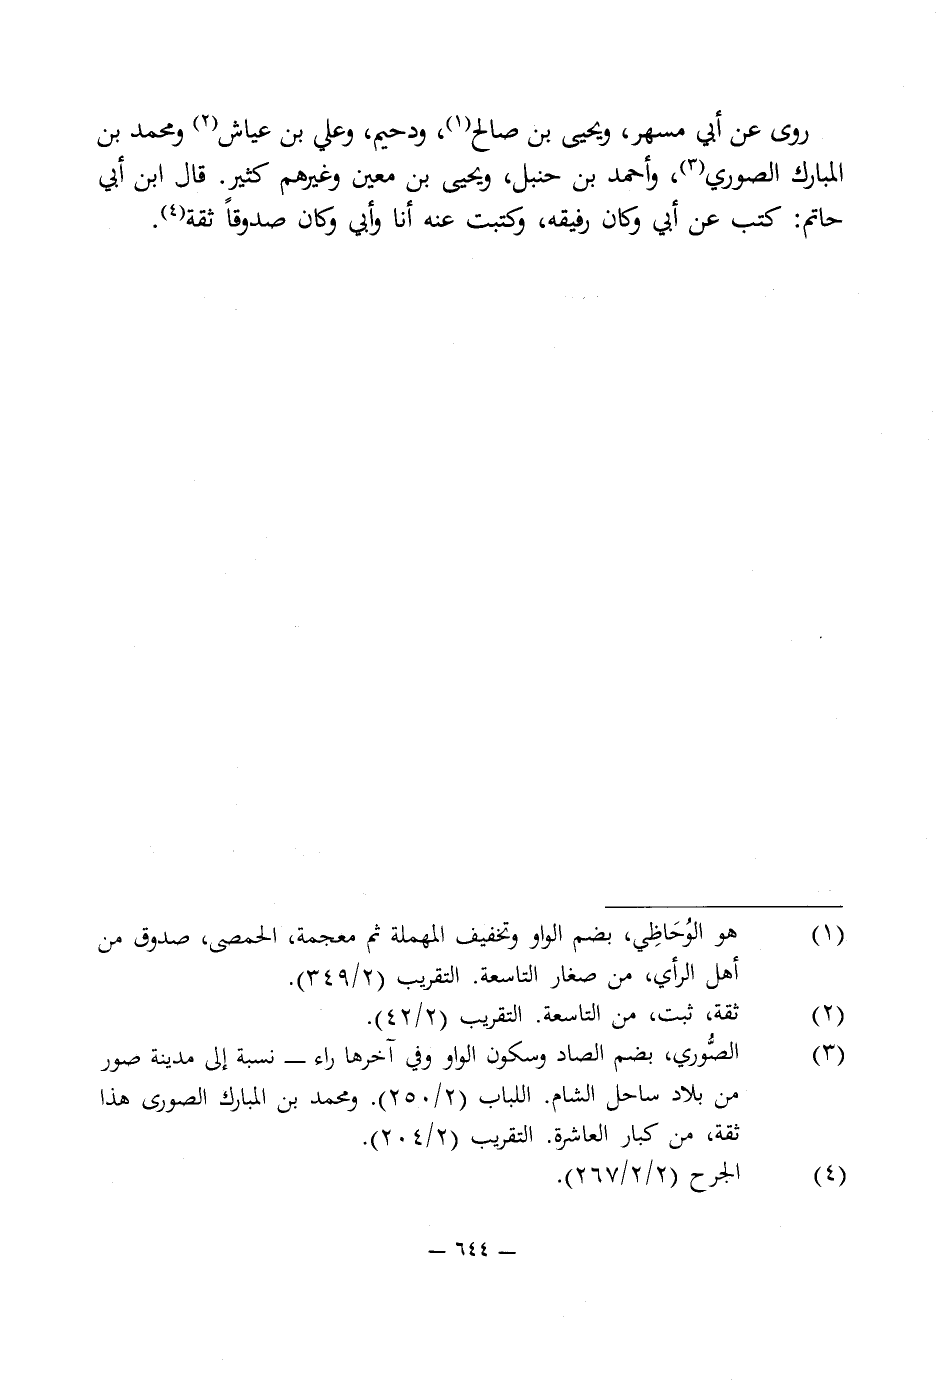 روى عن أبي مسهر، ويحيى بن صالح(١)، ودحيم، وعلي بن عياش(٢) ومحمد بن
المبارك الصوري(٣)، وأحمد بن حنبل، ويحيى بن معين وغيرهم كثير. قال ابن أبي
حاتم: كتب عن أبي وكان رفيقه، وكتبت عنه أنا وأبي وكان صدوقاً ثقة(٤).
(١) هو الوُحَاظِي، بضم الواو وتخفيف المهملة ثم معجمة، الحمصى، صدوق من
أهل الرأي، من صغار التاسعة. التقريب (٣٤٩/٢).
(٢) ثقة، ثبت، من التاسعة. التقريب (٤٢/٢).
(٣) الصُّوري، بضم الصاد وسكون الواو وفي آخرها راء — نسبة إلى مدينة صور
من بلاد ساحل الشام. اللباب (٢٥٠/٢). ومحمد بن المبارك الصورى هذا
ثقة، من كبار العاشرة. التقريب (٢٠٤/٢).
(٤) الجرح (٢٦٧/٢/٢).
— ٦٤٤ —